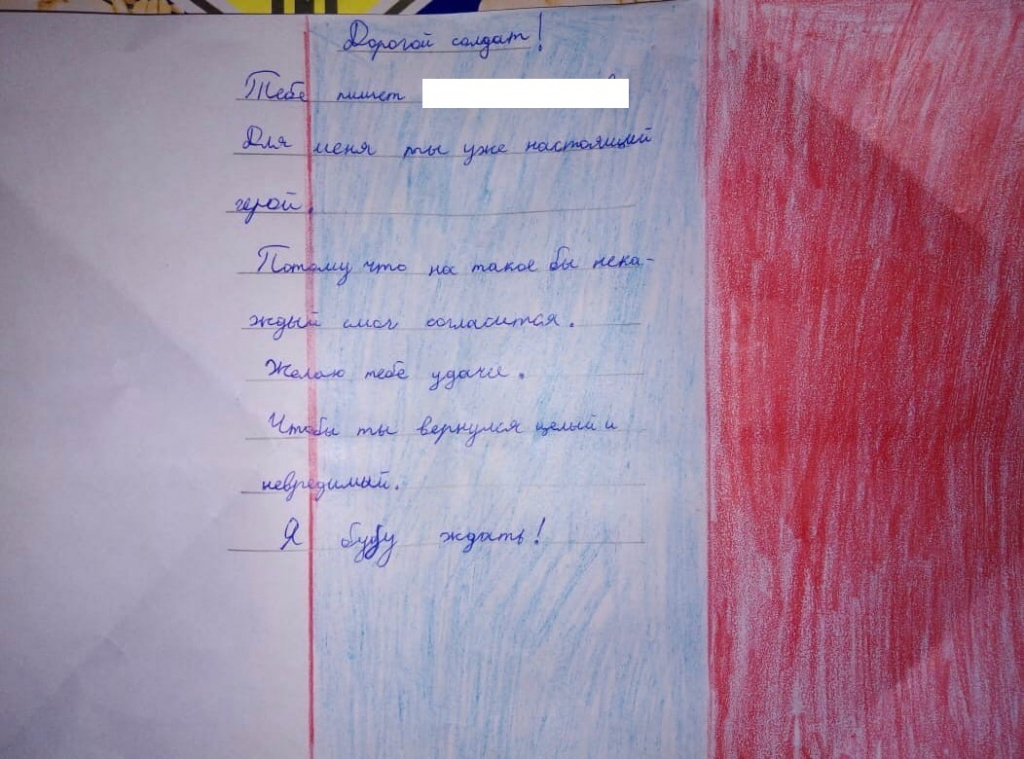 Дорогой солдат!
Тебе пишет
Для меня ты уже настоящий
герой.
Потому что на такое бы нека-
ждый смог согласится.
Желаю тебе удачи.
Чтобы ты вернулся целый и
невредимый.
Я буду ждать!